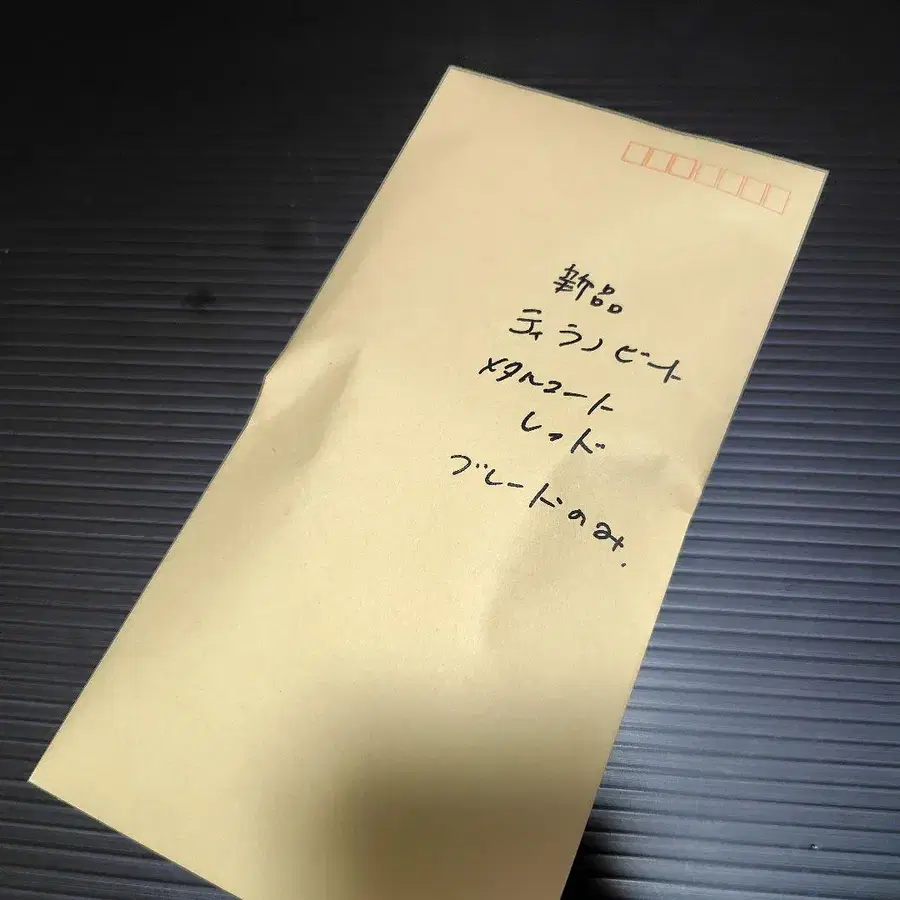 新品
ティラノビート
メタルコート
レッド
ブレードのみ.